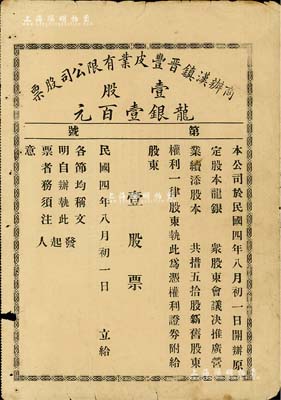 上海陽明拍賣
商辦漢鎮晉豐皮業有限公司股票
壹股
龍銀壹百元
第 號
本公司於民國四年八月初一日開辦原
定股本龍銀 衆股東會議決推廣營
業續添股本 共措五拾股新舊股東
權利一律股東執此爲憑權利證券附給
股東
壹股票
民國四年八月初一日 立給
各節均稱文 發
明自辦執此 起
票者務須注 人
意